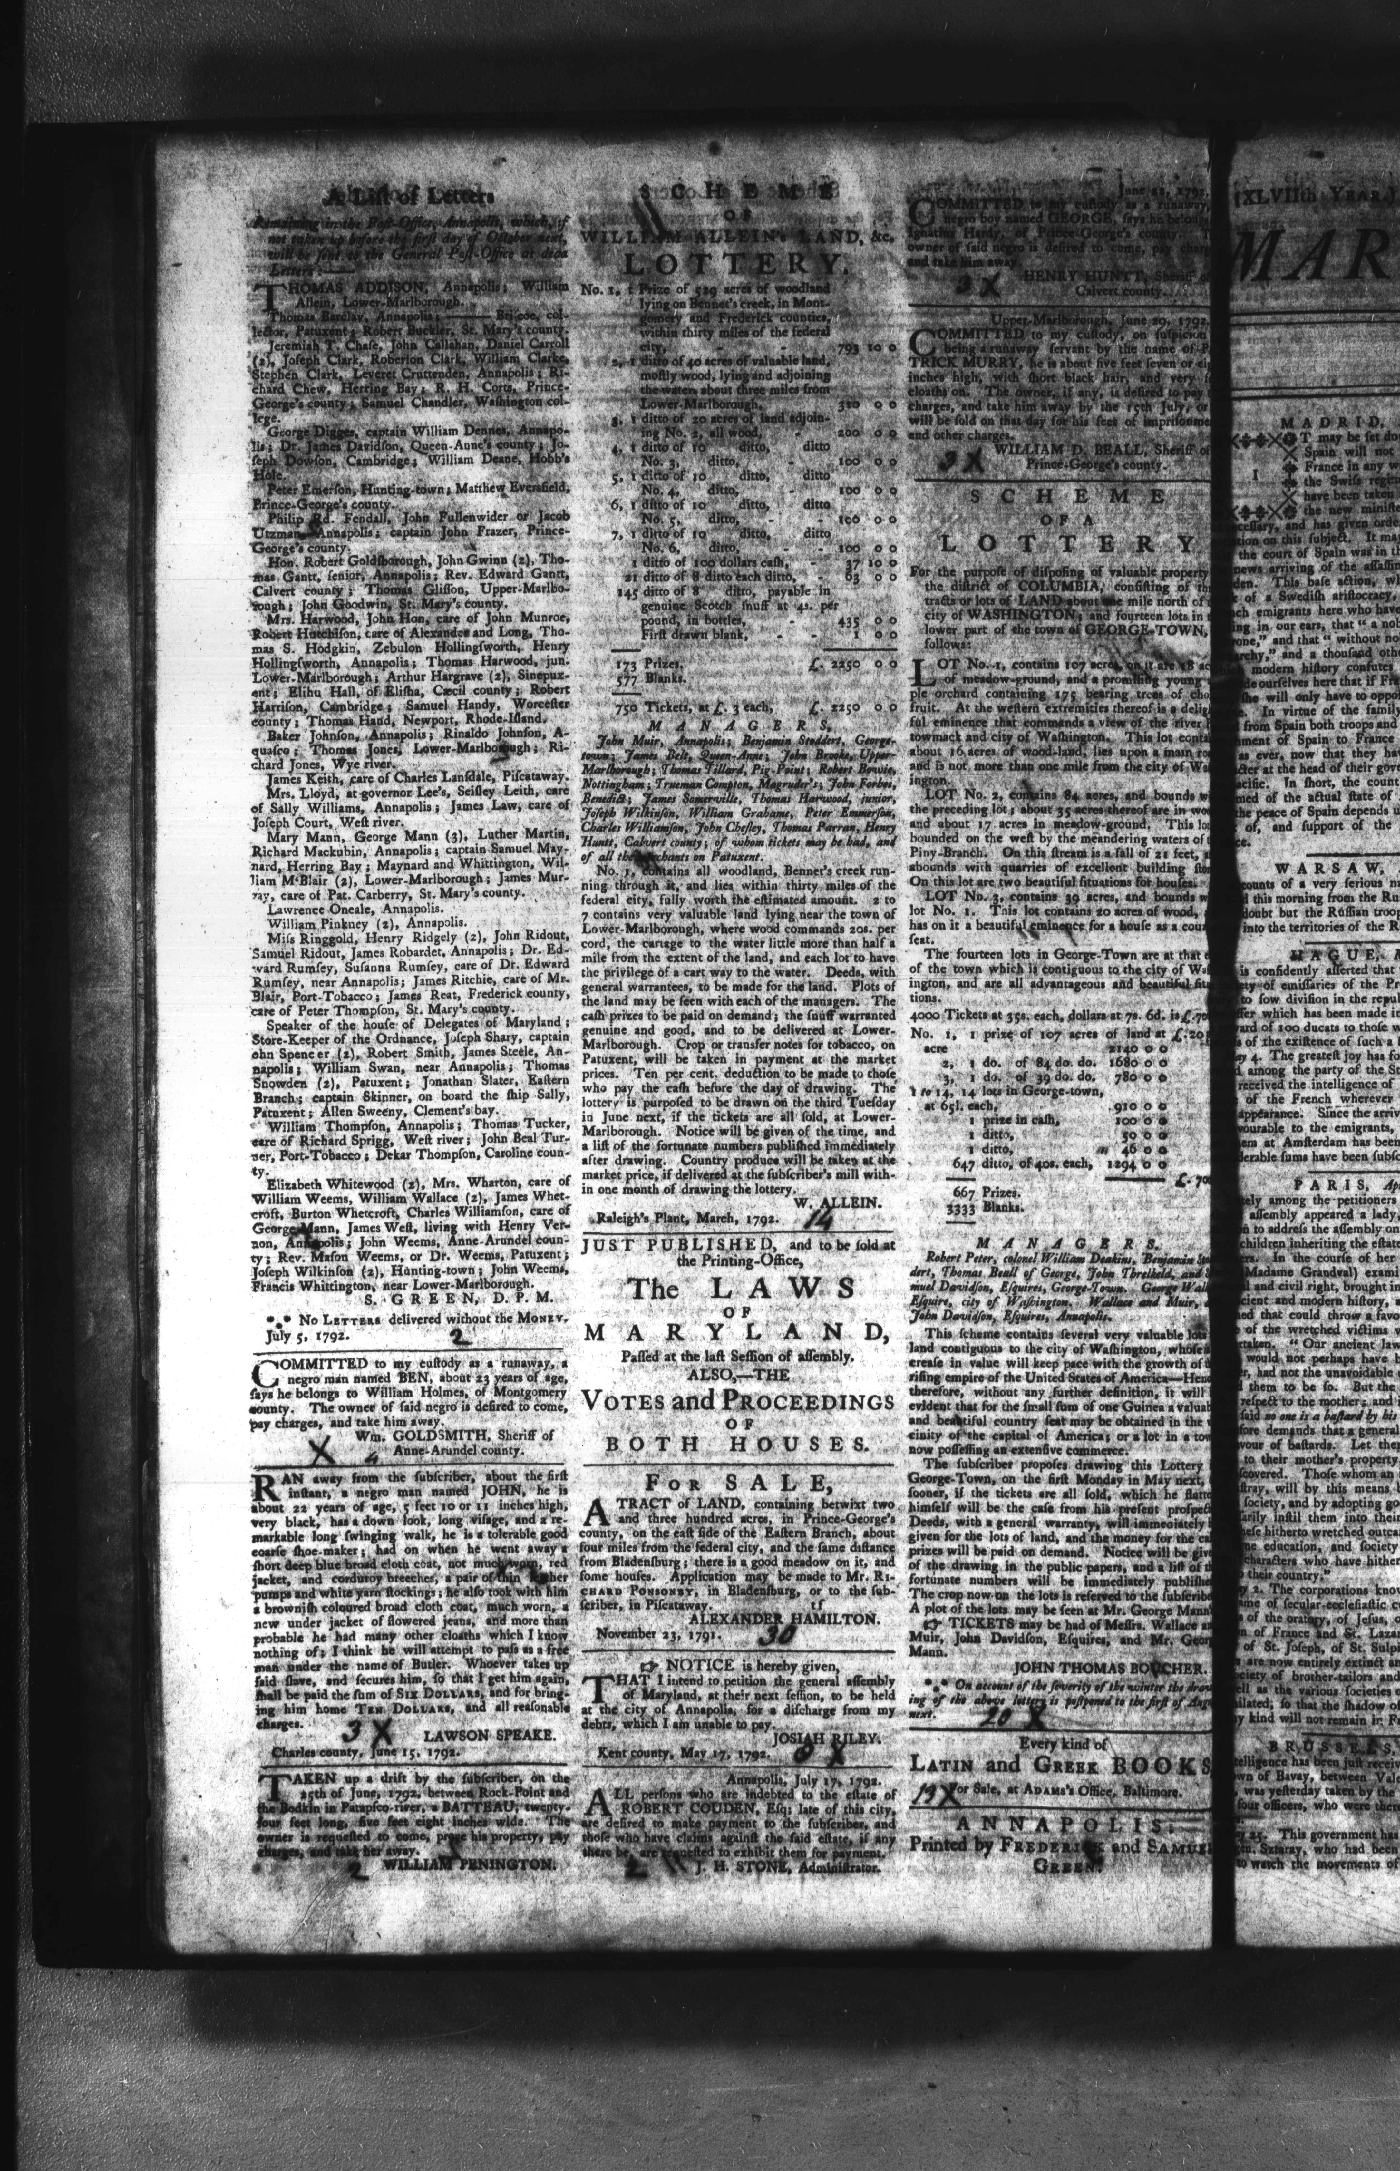 A List of Letters
Remaining in the Post-Office, Annapolis, which, if
not taken up before the first day of October next,
will be sent to the General Post-Office as dead
Letters:
THOMAS ADDISON, Annapolis; William
Allein, Lower-Marlborough.
Thomas Barclay, Annapolis; —— Briscoe, col-
lector, Patuxent; Robert Buckler, St. Mary's county.
Jeremiah T. Chase, John Callahan, Daniel Carroll
(2), Joseph Clark, Roberson Clark, William Clarke,
Stephen Clark, Leveret Cruttenden, Annapolis; Ri-
chard Chew, Herring Bay; R. H. Corts, Prince-
George's county; Samuel Chandler, Washington col-
lege.
George Digges, captain William Dennes, Annapo-
lis; Dr. James Davidson, Queen-Anne's county; Jo-
seph Dowson, Cambridge; William Deane, Hobb's
Hole.
Peter Emerson, Hunting-town; Matthew Eversfield,
Prince-George's county.
Philip Rd. Fendall, John Fullenwider or Jacob
Utzman, Annapolis; captain John Frazer, Prince-
George's county.
Hon. Robert Goldsborough, John Gwinn (2), Tho-
mas Gantt, senior, Annapolis; Rev. Edward Gantt,
Calvert county; Thomas Glisson, Upper-Marlbo-
rough; John Goodwin, St. Mary's county.
Mrs. Harwood, John Hon, care of John Munroe,
Robert Hutchison, care of Alexander and Long, Tho-
mas S. Hodgkin, Zebulon Hollingsworth, Henry
Hollingsworth, Annapolis; Thomas Harwood, jun.
Lower-Marlborough; Arthur Hargrave (2), Sinepux-
ent; Elihu Hall, of Elisha, Cæcil county; Robert
Harrison, Cambridge; Samuel Handy, Worcester
county; Thomas Hand, Newport, Rhode-Island.
Baker Johnson, Annapolis; Rinaldo Johnson, A-
quasco; Thomas Jones, Lower-Marlborough; Ri-
chard Jones, Wye river.
James Keith, care of Charles Lansdale, Piscataway.
Mrs. Lloyd, at governor Lee's, Seisley Leith, care
of Sally Williams, Annapolis; James Law, care of
Joseph Court, West river.
Mary Mann, George Mann (3), Luther Martin,
Richard Mackubin, Annapolis; captain Samuel May-
nard, Herring Bay; Maynard and Whittington, Wil-
liam M'Blair (2), Lower-Marlborough; James Mur-
ray, care of Pat. Carberry, St. Mary's county.
Lawrence Oneale, Annapolis.
William Pinkney (2), Annapolis.
Miss Ringgold, Henry Ridgely (2), John Ridout,
Samuel Ridout, James Robardet, Annapolis; Dr. Ed-
ward Rumsey, Susanna Rumsey, care of Dr. Edward
Rumsey, near Annapolis; James Ritchie, care of Mr.
Blair, Port-Tobacco; James Reat, Frederick county,
care of Peter Thompson, St. Mary's county.
Speaker of the house of Delegates of Maryland;
Store-Keeper of the Ordnance, Joseph Shary, captain
ohn Spencer (2), Robert Smith, James Steele, An-
napolis; William Swan, near Annapolis; Thomas
Snowden (2), Patuxent; Jonathan Slater, Eastern
Branch; captain Skinner, on board the ship Sally,
Patuxent; Allen Sweeny, Clement's bay.
William Thompson, Annapolis; Thomas Tucker,
care of Richard Sprigg, West river; John Beal Tur-
ner, Port-Tobacco; Dekar Thompson, Caroline coun-
ty.
Elizabeth Whitewood (2), Mrs. Wharton, care of
William Weems, William Wallace (2), James Whet-
croft, Burton Whetcroft, Charles Williamson, care of
George Mann, James West, living with Henry Ver-
non, Annapolis; John Weems, Anne-Arundel coun-
ty; Rev. Mason Weems, or Dr. Weems, Patuxent;
Joseph Wilkinson (2), Hunting-town; John Weems,
Francis Whittington, near Lower-Marlborough.
S. GREEN, D. P. M.
No LETTERS delivered without the MONEY.
July 5, 1792. 2
COMMITTED to my custody as a runaway, a
negro man named BEN, about 23 years of age,
says he belongs to William Holmes, of Montgomery
county. The owner of said negro is desired to come,
pay charges, and take him away.
Wm. GOLDSMITH, Sheriff of
X Anne-Arundel county.
RAN away from the subscriber, about the first
instant, a negro man named JOHN, he is
about 22 years of age, 5 feet 10 or 11 inches high,
very black, has a down look, long visage, and a re-
markable long swinging walk, he is a tolerable good
coarse shoe-maker; had on when he went away a
short deep blue broad cloth coat, not much worn, red
jacket, and corduroy breeches, a pair of thin leather
pumps and white yarn stockings; he also took with him
a brownish coloured broad cloth coat, much worn, a
new under jacket of flowered jeans, and more than
probable he had many other cloaths which I know
nothing of; I think he will attempt to pass as a free
man under the name of Butler. Whoever takes up
said slave, and secures him, so that I get him again,
shall be paid the sum of SIX DOLLARS, and for bring-
ing him home TEN DOLLARS, and all reasonable
charges.
3 X LAWSON SPEAKE.
Charles county, June 15, 1792.
TAKEN up a drift by the subscriber, on the
25th of June, 1792, between Rock-Point and
the Bodkin in Patapsco-river, a BATTEAU, twenty-
four feet long, five feet eight inches wide. The
owner is requested to come, prove his property, pay
charges, and take her away.
2 WILLIAM PENINGTON.
SCHEME
OF
WILLIAM ALLEIN's LAND, &c.
LOTTERY.
No. 1, 1 Prize of 529 acres of woodland
lying on Bennet's creek, in Mont-
gomery and Frederick counties,
within thirty miles of the federal
city, - - 793 10 0
2, 1 ditto of 40 acres of valuable land,
mostly wood, lying and adjoining
the water, about three miles from
Lower-Marlborough, 320 0 0
3, 1 ditto of 20 acres of land adjoin-
ing No. 2, all wood, - 200 0 0
4, 1 ditto of 10 ditto, ditto
No. 3, ditto, - 100 0 0
5, 1 ditto of 10 ditto, ditto
No. 4, ditto, - 100 0 0
6, 1 ditto of 10 ditto, ditto
No. 5, ditto, - - 100 0 0
7, 1 ditto of 10 ditto, ditto
No. 6, ditto, - - 100 0 0
1 ditto of 100 dollars cash, - 37 10 0
21 ditto of 8 ditto each ditto, - 63 0 0
145 ditto of 8 ditto, payable in
genuine Scotch snuff at 4s. per
pound, in bottles, - 435 0 0
First drawn blank, - - 1 0 0
173 Prizes, £. 2250 0 0
577 Blanks.
750 Tickets, at £. 3 each, £. 2250 0 0
MANAGERS,
John Muir, Annapolis; Benjamin Stoddert, George-
town; James Belt, Queen-Anne; John Brooke, Upper-
Marlborough; Thomas Tillard, Pig-Point; Robert Bowie,
Nottingham; Trueman Compton, Magruder's; John Forbes,
Benedict; James Somerville, Thomas Harwood, junior,
Joseph Wilkinson, William Grahame, Peter Emmerson,
Charles Williamson, John Chesley, Thomas Parran, Henry
Hunt, Calvert county; of whom tickets may be had, and
of all the merchants on Patuxent.
No. 1, contains all woodland, Bennet's creek run-
ning through it, and lies within thirty miles of the
federal city, fully worth the estimated amount. 2 to
7 contains very valuable land lying near the town of
Lower-Marlborough, where wood commands 20s. per
cord, the cartage to the water little more than half a
mile from the extent of the land, and each lot to have
the privilege of a cart way to the water. Deeds, with
general warrantees, to be made for the land. Plots of
the land may be seen with each of the managers. The
cash prizes to be paid on demand; the snuff warranted
genuine and good, and to be delivered at Lower-
Marlborough. Crop or transfer notes for tobacco, on
Patuxent, will be taken in payment at the market
prices. Ten per cent. deduction to be made to those
who pay the cash before the day of drawing. The
lottery is purposed to be drawn on the third Tuesday
in June next, if the tickets are all sold, at Lower-
Marlborough. Notice will be given of the time, and
a list of the fortunate numbers published immediately
after drawing. Country produce will be taken at the
market price, if delivered at the subscriber's mill with-
in one month of drawing the lottery.
W. ALLEIN.
Raleigh's Plant, March, 1792. 14
JUST PUBLISHED, and to be sold at
the Printing-Office,
The LAWS
OF
MARYLAND,
Passed at the last Session of assembly.
ALSO,—THE
VOTES and PROCEEDINGS
OF
BOTH HOUSES.
FOR SALE,
A TRACT of LAND, containing betwixt two
and three hundred acres, in Prince-George's
county, on the east side of the Eastern Branch, about
four miles from the federal city, and the same distance
from Bladensburg; there is a good meadow on it, and
some houses. Application may be made to Mr. RI-
CHARD PONSONBY, in Bladensburg, or to the sub-
scriber, in Piscataway. tf
ALEXANDER HAMILTON.
November 23, 1791. 30
☞ NOTICE is hereby given,
THAT I intend to petition the general assembly
of Maryland, at their next session, to be held
at the city of Annapolis, for a discharge from my
debts, which I am unable to pay.
JOSIAH RILEY.
Kent county, May 17, 1792. X
Annapolis, July 17, 1792.
ALL persons who are indebted to the estate of
ROBERT COUDEN, Esq; late of this city,
are desired to make payment to the subscriber, and
those who have claims against the said estate, if any
there be, are requested to exhibit them for payment.
2 J. H. STONE, Administrator.
June 23, 1792.
COMMITTED to my custody as a runaway,
negro boy named GEORGE, says he belong
Ignatius Hardy, of Prince-George's county. T
owner of said negro is desired to come, pay charg
and take him away.
X HENRY HUNTT, Sheriff of
Calvert county.
Upper-Marlborough, June 29, 1792.
COMMITTED to my custody, on suspicion
being a runaway servant by the name of P
TRICK MURRY, he is about five feet seven or eig
inches high, with short black hair, and very
cloaths on. The owner, if any, is desired to pay
charges, and take him away by the 15th July, or
will be sold on that day for his fees of imprisonme
and other charges.
X WILLIAM D. BEALL, Sheriff of
Prince-George's county.
SCHEME
OF A
LOTTERY
For the purpose of disposing of valuable property
the district of COLUMBIA, consisting of th
tracts or lots of LAND about one mile north of
city of WASHINGTON; and fourteen lots in
lower part of the town of GEORGE-TOWN,
follows:
LOT No. 1, contains 107 acres, on it are 18 ac
of meadow-ground, and a promising young
ple orchard containing 175 bearing trees of cho
fruit. At the western extremities thereof is a delig
ful eminence that commands a view of the river
towmack and city of Washington. This lot conta
about 16 acres of wood-land, lies upon a main ro
and is not more than one mile from the city of Wa
ington.
LOT No. 2, contains 84 acres, and bounds w
the preceding lot; about 35 acres thereof are in woo
and about 17 acres in meadow-ground. This lot
bounded on the west by the meandering waters of
Piny-Branch. On this stream is a fall of 21 feet,
abounds with quarries of excellent building ston
On this lot are two beautiful situations for houses.
LOT No. 3, contains 39 acres, and bounds w
lot No. 1. This lot contains 20 acres of wood,
has on it a beautiful eminence for a house as a coun
seat.
The fourteen lots in George-Town are at that e
of the town which is contiguous to the city of Wa
ington, and are all advantageous and beautiful situ
tions.
4000 Tickets at 35s. each, dollars at 7s. 6d. is £.70
No. 1, 1 prize of 107 acres of land at £.20
acre 2140 0 0
2, 1 do. of 84 do. do. 1680 0 0
3, 1 do. of 39 do. do. 780 0 0
1 to 14, 14 lots in George-town,
at 65l. each, 910 0 0
1 prize in cash, 100 0 0
1 ditto, 50 0 0
1 ditto, 46 0 0
647 ditto, of 40s. each, 1294 0 0
£.700
667 Prizes.
3333 Blanks.
MANAGERS,
Robert Peter, colonel William Deakins, Benjamin Sto
dert, Thomas Beall of George, John Threlkeld, and S
muel Davidson, Esquires, George-Town. George Wall
Esquire, city of Washington. Wallace and Muir,
John Davidson, Esquires, Annapolis.
This scheme contains several very valuable lots
land contiguous to the city of Washington, whose i
crease in value will keep pace with the growth of t
rising empire of the United States of America—Henc
therefore, without any further definition, it will
evident that for the small sum of one Guinea a valuab
and beautiful country seat may be obtained in the v
cinity of the capital of America; or a lot in a tow
now possessing an extensive commerce.
The subscriber proposes drawing this Lottery
George-Town, on the first Monday in May next,
sooner, if the tickets are all sold, which he flatte
himself will be the case from his present prospect
Deeds, with a general warranty, will immediately
given for the lots of land, and the money for the ca
prizes will be paid on demand. Notice will be give
of the drawing in the public papers, and a list of t
fortunate numbers will be immediately publishe
The crop now on the lots is referred to the subscribe
A plot of the lots may be seen at Mr. George Mann
☞ TICKETS may be had of Messrs. Wallace an
Muir, John Davidson, Esquires, and Mr. Geor
Mann.
JOHN THOMAS BOUCHER.
On account of the severity of the winter the draw
ing of the above lottery is postponed to the first of Aug
next. 20 X
Every kind of
LATIN and GREEK BOOKS
For Sale, at ADAMS's Office, Baltimore.
ANNAPOLIS:
Printed by FREDERICK and SAMUEL
GREEN.
[XLVIIth YEAR.
MAR
MADRID,
IT may be set do
Spain will not
France in any
the Swiss regim
have been taken
the new ministe
cessary, and has given order
tion on this subject. It may
the court of Spain was in th
news arriving of the assassin
den. This base action, w
of a Swedish aristocracy,
ch emigrants here who have
ing in our ears, that "a nob
one," and that "without no
rchy," and a thousand oth
modern history confutes
de ourselves here that if Fra
she will only have to oppo
In virtue of the family
from Spain both troops and
ment of Spain to France
as ever, now that they ha
cter at the head of their gove
acific. In short, the count
med of the actual state of
the peace of Spain depends u
of, and support of the
ce.
WARSAW,
counts of a very serious n
d this morning from the Rus
doubt but the Russian troop
into the territories of the R
HAGUE, A
is confidently asserted that
ety of emissaries of the Pr
to sow division in the repu
ffer which has been made in
ard of 100 ducats to those w
of the existence of such a
ay 4. The greatest joy has fo
d among the party of the St
received the intelligence of
of the French wherever
appearance. Since the arriv
vourable to the emigrants,
em at Amsterdam has been
derable sums have been subsc
PARIS, Ap
tely among the petitioners
assembly appeared a lady,
n to address the assembly on
children inheriting the estate
rs. In the course of her
Madame Grandval) exami
l and civil right, brought in
cient and modern history, a
ned that could throw a favo
of the wretched victims o
rtaken. "Our ancient law
would not perhaps have b
er, had not the unavoidable
d them to be so. But the
respect to the mother; and
said no one is a bastard by his
fore demands that a general
vour of bastards. Let the
to their mother's property
covered. Those whom an
stray, will by this means b
society, and by adopting go
arily instil them into their
hese hitherto wretched outca
ne education, and society
characters who have hither
their country."
y 2. The corporations know
ame of secular-ecclesiastic co
of the oratory, of Jesus,
n of France and St. Lazar
of St. Joseph, of St. Sulpi
are now entirely extinct an
ciety of brother-tailors and
ell as the various societies o
ilated; so that the shadow o
y kind will not remain in Fr
BRUSSELS,
telligence has been just receiv
wn of Bavay, between Vale
was yesterday taken by the
four officers, who were the
y 25. This government has
en. Sztaray, who had been
to watch the movements of